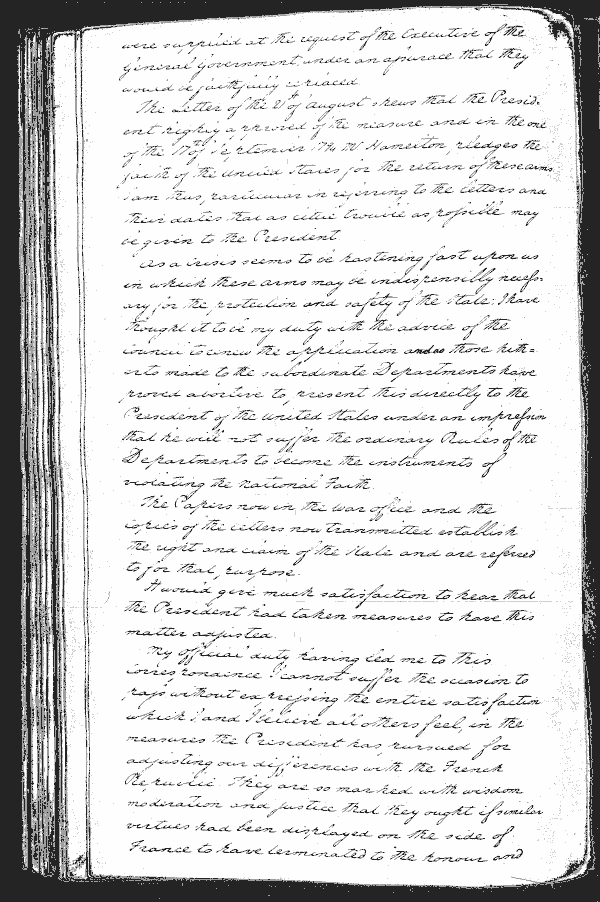 were supplied at the request of the Executive of the
General Government under an assurance that they
would be faithfully replaced
The Letter of the 21 of August shews that the Presid-
ent highly approved of the measure and in the one
of the 17 of September 1794 Mr Hamilton pledges the
faith of the United States for the return of these arms
I am thus particular in referring to the letters and
their dates that as little trouble as possible may
be given to the President
As a Crisis seems to be hastening fast upon us
in which these arms may be indispensibly necess-
ary for the protection and safety of the State; I have
thought it to be my duty with the advice of the
Council to renew the application and as those hith=
erto made to the subordinate Departments have
proved abortive to present this directly to the
President of the United States under an impression
that he will not suffer the ordinary Rules of the
Departments to become the instruments of
violating the National Faith
The Papers now in the War office and the
copies of the letters now transmitted establish
the right and claim of the State and are referred
to for that purpose.
It would give much satisfaction to hear that
the President had taken measures to have this
matter adjusted.
My official duty having led me to this
correspondence I cannot suffer the occasion to
pass without expressing the entire satisfaction
which I and I believe all others feel, in the
measures the President has pursued for
adjusting our differences with the French
Republic. They are so marked with wisdom
moderation and justice that they ought if similar
virtues had been displayed on the side of
France to have terminated to the honour and